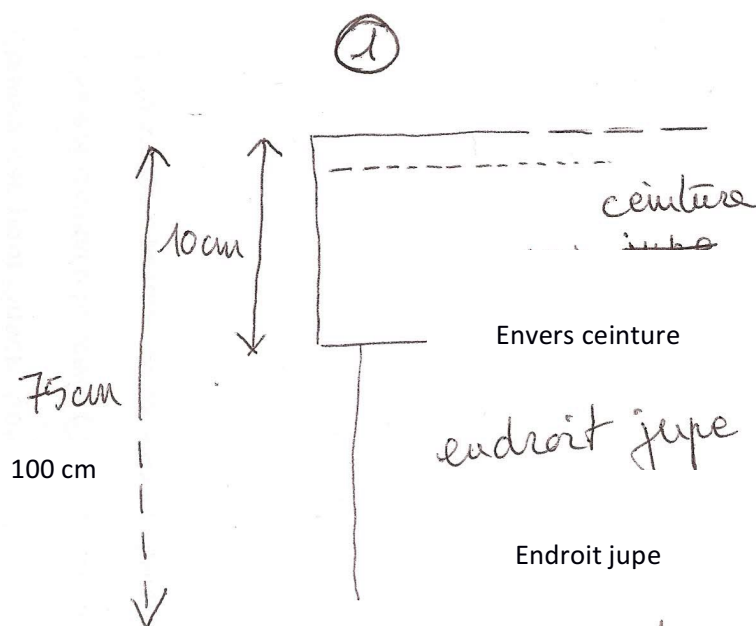 1
10cm
ceinture
jupe
Envers ceinture
75cm
endroit jupe
100 cm
Endroit jupe